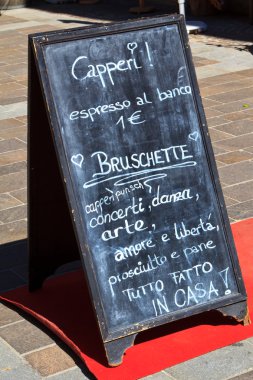 Capperi!
espresso al banco
1€
BRUSCHETTE
capperi punsch
concerti, danza,
arte,
amore e libertà,
prosciutto e pane
TUTTO FATTO
IN CASA!